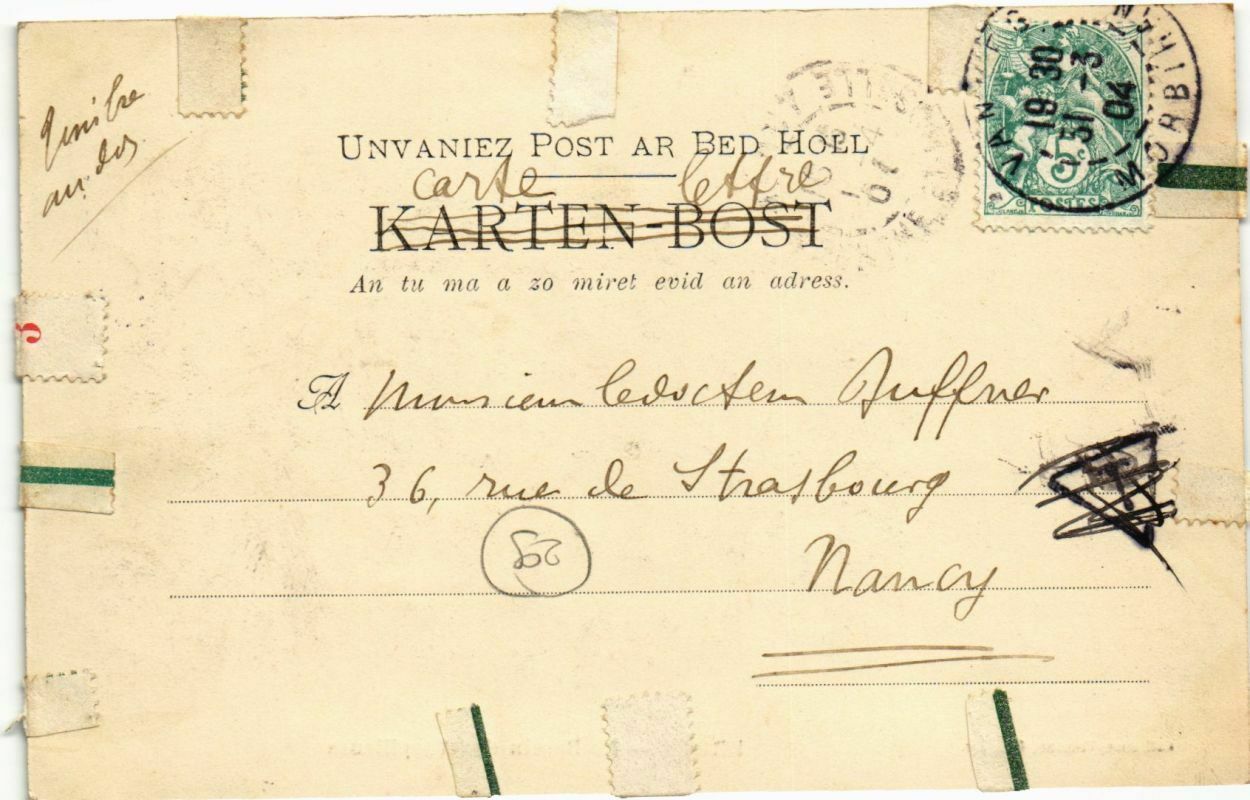 timbre
au dos
UNVANIEZ POST AR BED HOLL
carte lettre
KARTEN-BOST
An tu ma a zo miret evid an adress.
A Monsieur le docteur Ruffner
36, rue de Strasbourg
Nancy
VANNES MORBIHAN
19 30
31 -3
04
5
POSTES
3